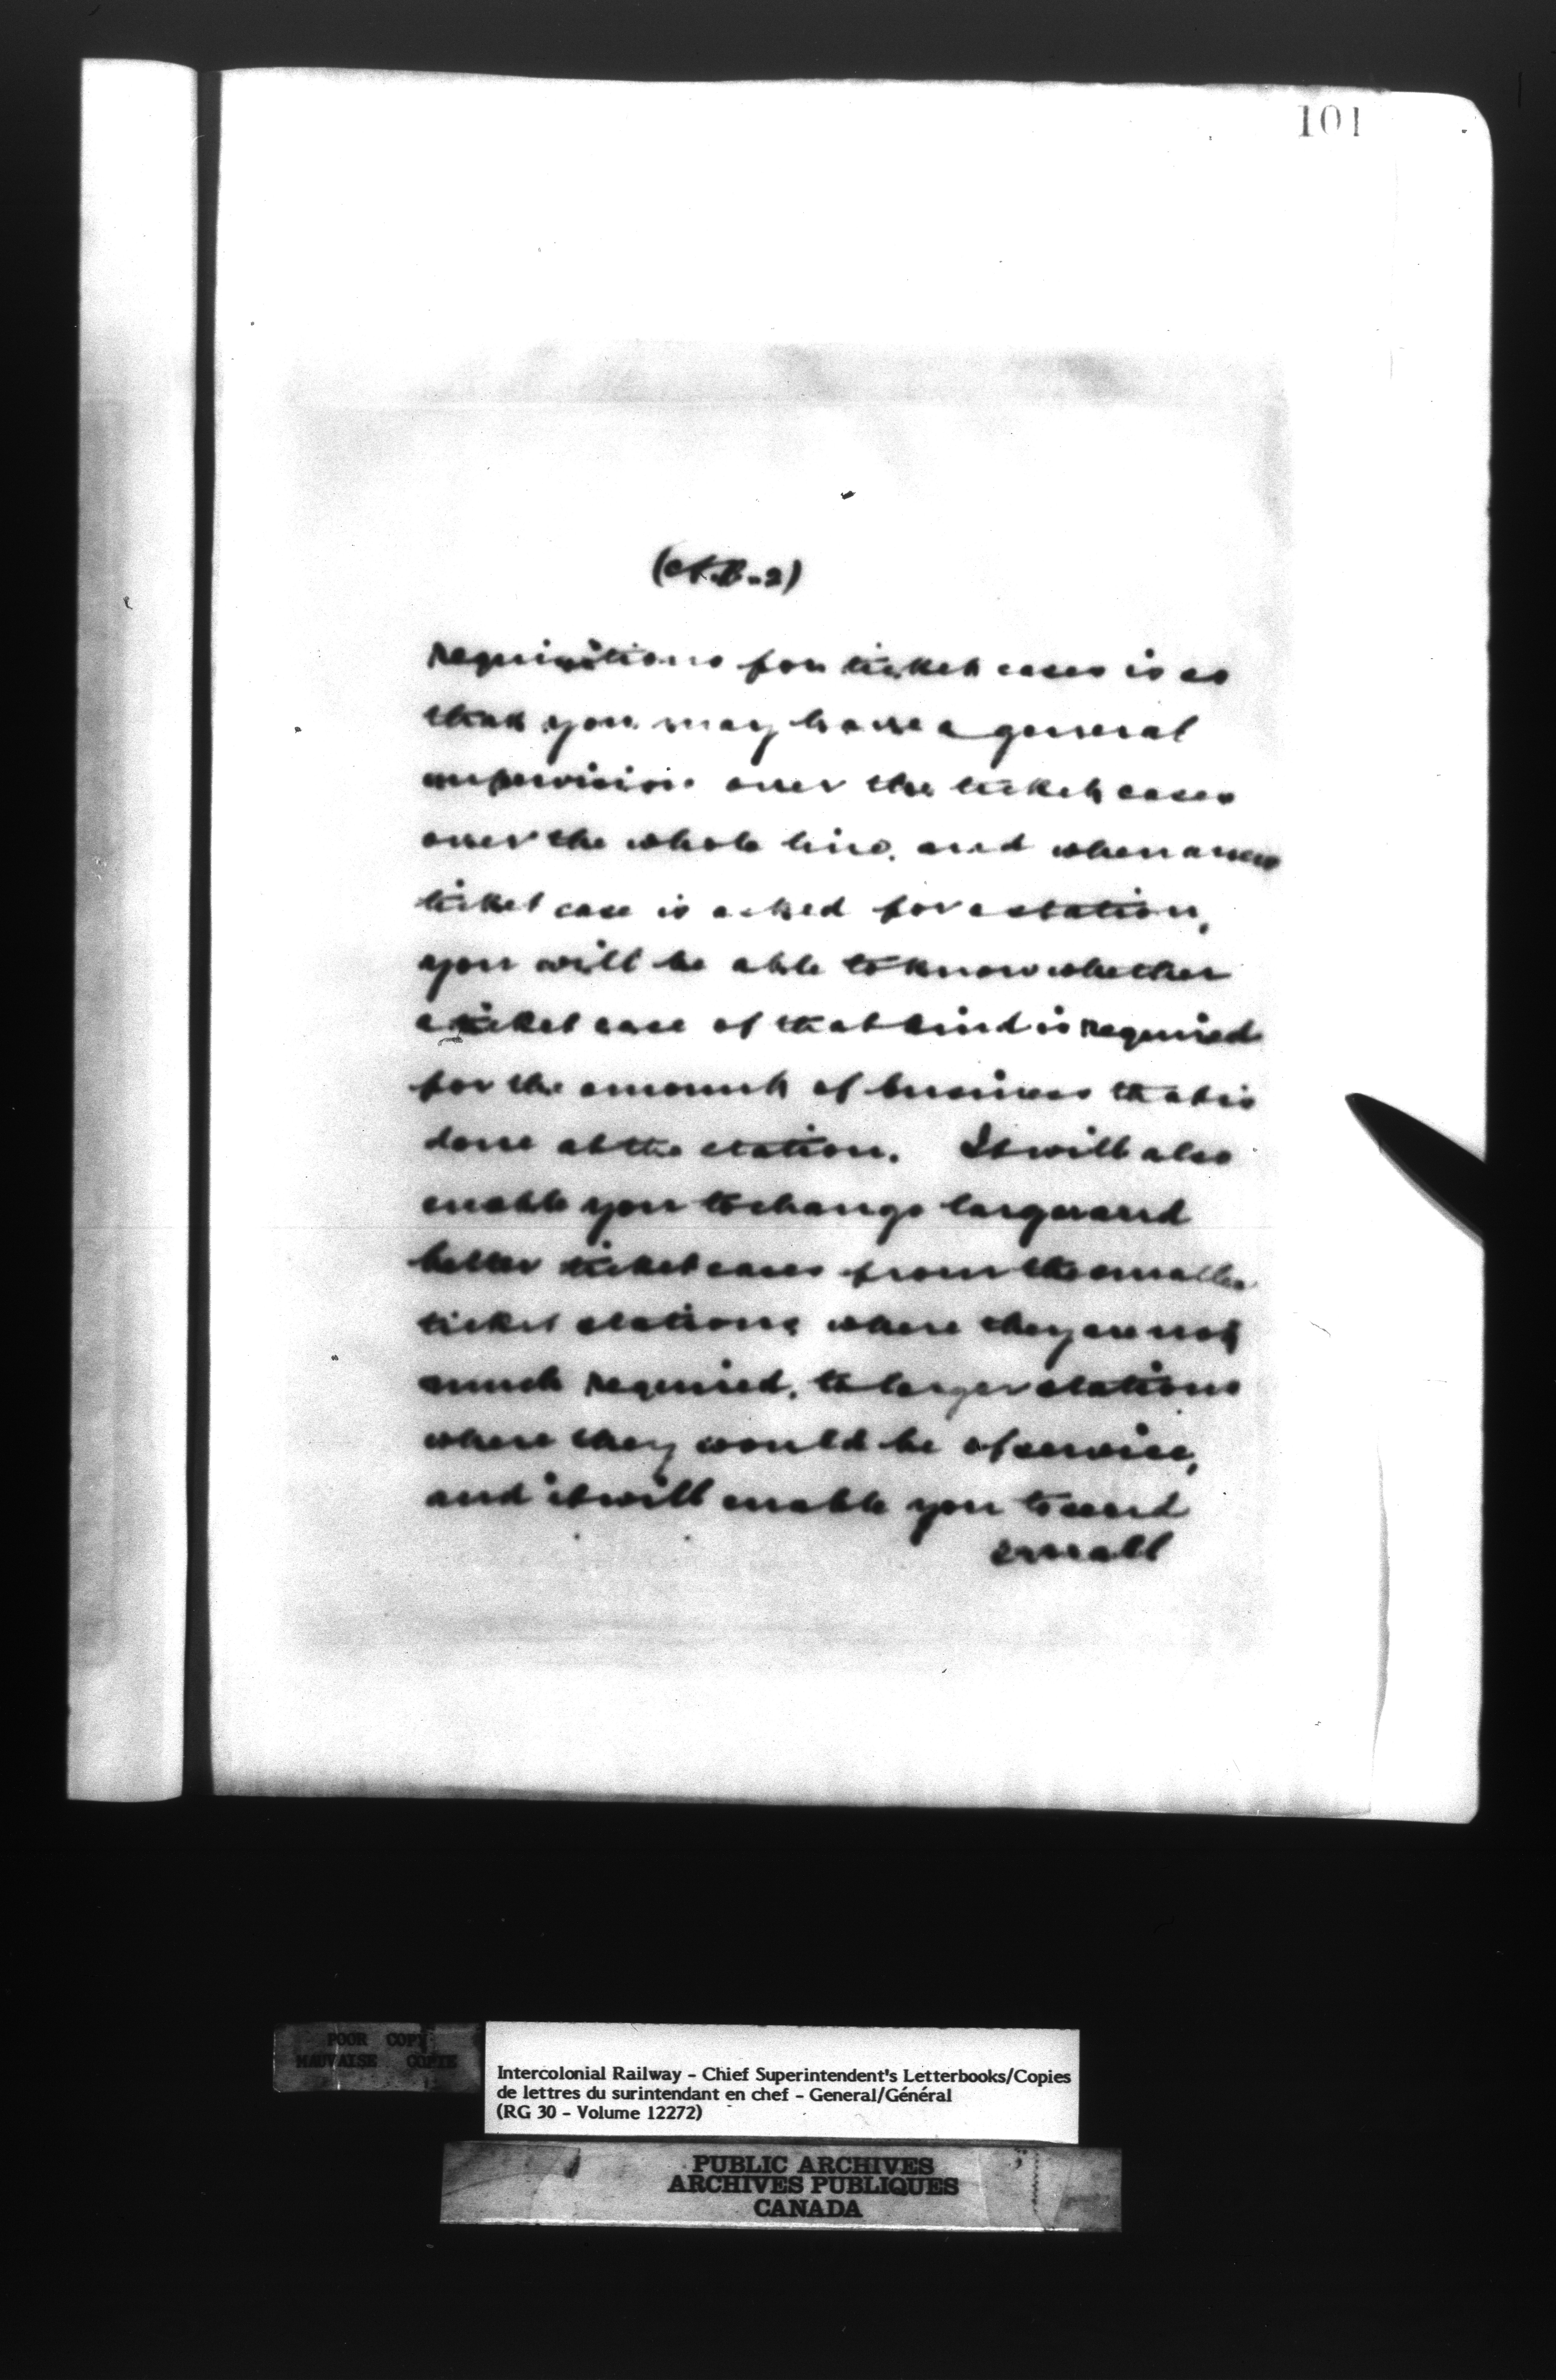 101
(A.B.-2)
requisitions for ticket cases is so
that you may have a general
supervision over the ticket cases
over the whole line, and when a new
ticket case is asked for a station,
you will be able to know whether
a ticket case of that kind is required
for the amount of business that is
done at the station. It will also
enable you to change larger and
better ticket cases from the smaller
ticket stations where they are not
much required, to larger stations
where they would be of service,
and it will enable you to send
small
POOR COPY
MAUVAISE COPIE
Intercolonial Railway - Chief Superintendent's Letterbooks/Copies
de lettres du surintendant en chef - General/Général
(RG 30 - Volume 12272)
PUBLIC ARCHIVES
ARCHIVES PUBLIQUES
CANADA